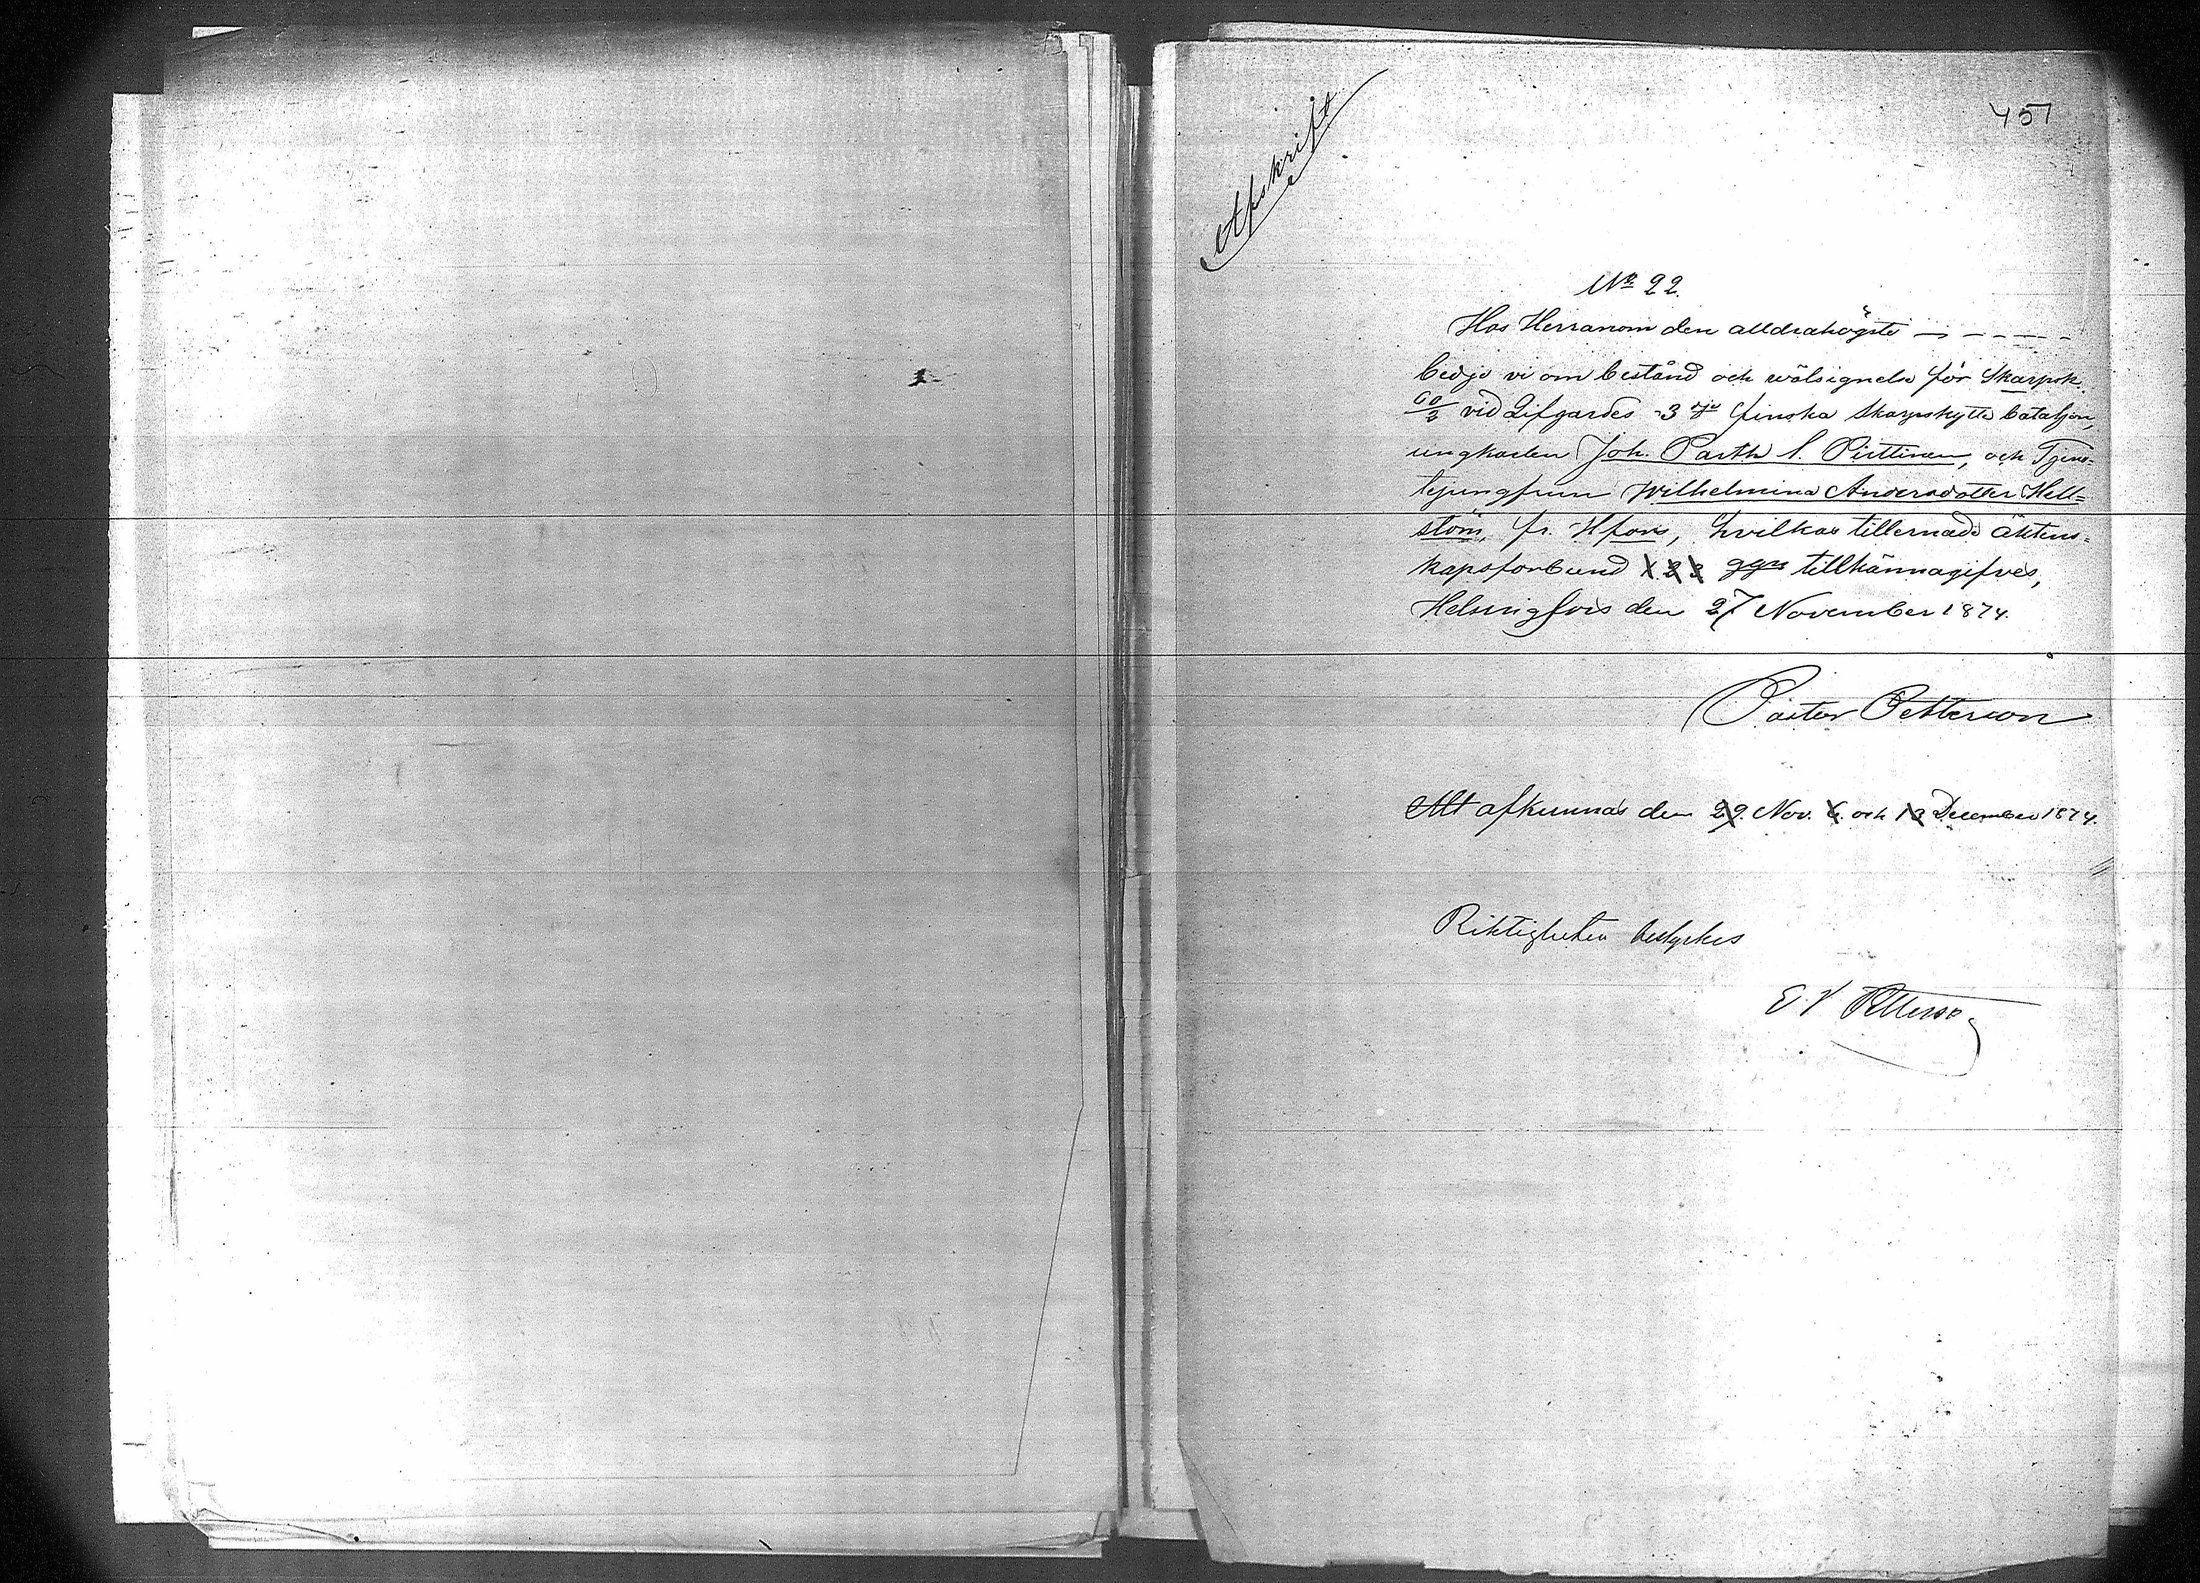 457
Afskrift
No 22.
Hos Herranom den alldrahögste — - - - -
bedje vi om bestånd och wälsignelse för Skarpsk.
60/2 vid Lifgardes 3 dje finska Skarpskytte bataljon,
ungkarlen Joh. Parth. S. Pirttinen, och Tjens-
tejungfrun Wilhelmina Andersdotter Hell=
stöm, fr. Hfors, hvilkas tillernade äktens=
kapsförbund 1. 2 3 ggn tillkännagifves,
Helsingfors den 27 November 1874.
Pastor Petterson
Att afkunnas den 29. Nov. 6. och 13 December 1874.
Riktigheten bestyrkes
E. V. Petterson